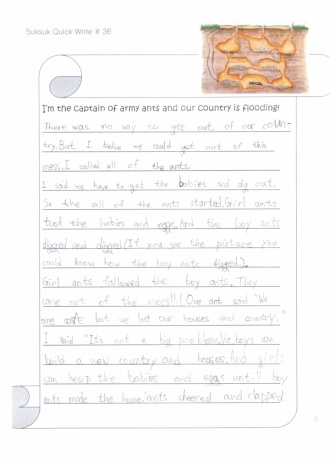 Suksuk Quick Write # 36
I'm the captain of army ants and our country is flooding!
There was no way to get out of our coun-
try. But I belive we could get out of this
mess. I called all of the ants.
I said we have to get the babies and dig out.
So the all of the ants started. Girl ants
took the babies and eggs. And the boy ants
digged and digged (If you see the picture you
could know how the boy ants digged).
Girl ants followed the boy ants. They
came out of the mess!! One ant said "We
are safe but we lost our houses and country."
I said "It's not a big problem. We boys can
build a new country and houses. And girls
can keep the babies and eggs untill boy
ants made the house." ants cheered and clapped